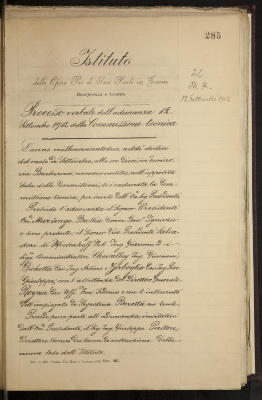 285
22
N. 7.
12 Settembre 1912
Istituto
delle Opere Pie di San Paolo in Torino
Beneficenza e Credito
Processo verbale dell'adunanza 12
Settembre 1912 della Commissione tecnica
L'anno millenovecentododici, addì dodici
del mese di Settembre, alle ore dieci, in Torino,
via Barbaroux, numero ventitre, nell'apposita
sala delle Commissioni, si è radunata la Com-
missione tecnica, per invito dell'On. Sig. Presidente
Presiede l'adunanza il Signor Presidente
On. Marsengo Bastia Comm. Avv. Ignazio
e sono presenti: il Signor Vice Presidente Salva-
dori di Wiesenhoff Nob. Ing. Giacomo e i
Sigg. Amministratori Chevalley Ing. Giovanni,
Cav. Ing. Arturo, Cav. Ing. Avv.
Giuseppe, con l'assistenza del Direttore Generale
Cav. Uff. Avv. Federico e con l'intervento
dell'impiegato di Segreteria
Prende pure parte all'adunanza, invitatovi
dall'On. Presidente, il Sig. Ing. Giuseppe
Direttore tecnico dei lavori di costruzione della
nuova sede dell'Istituto.